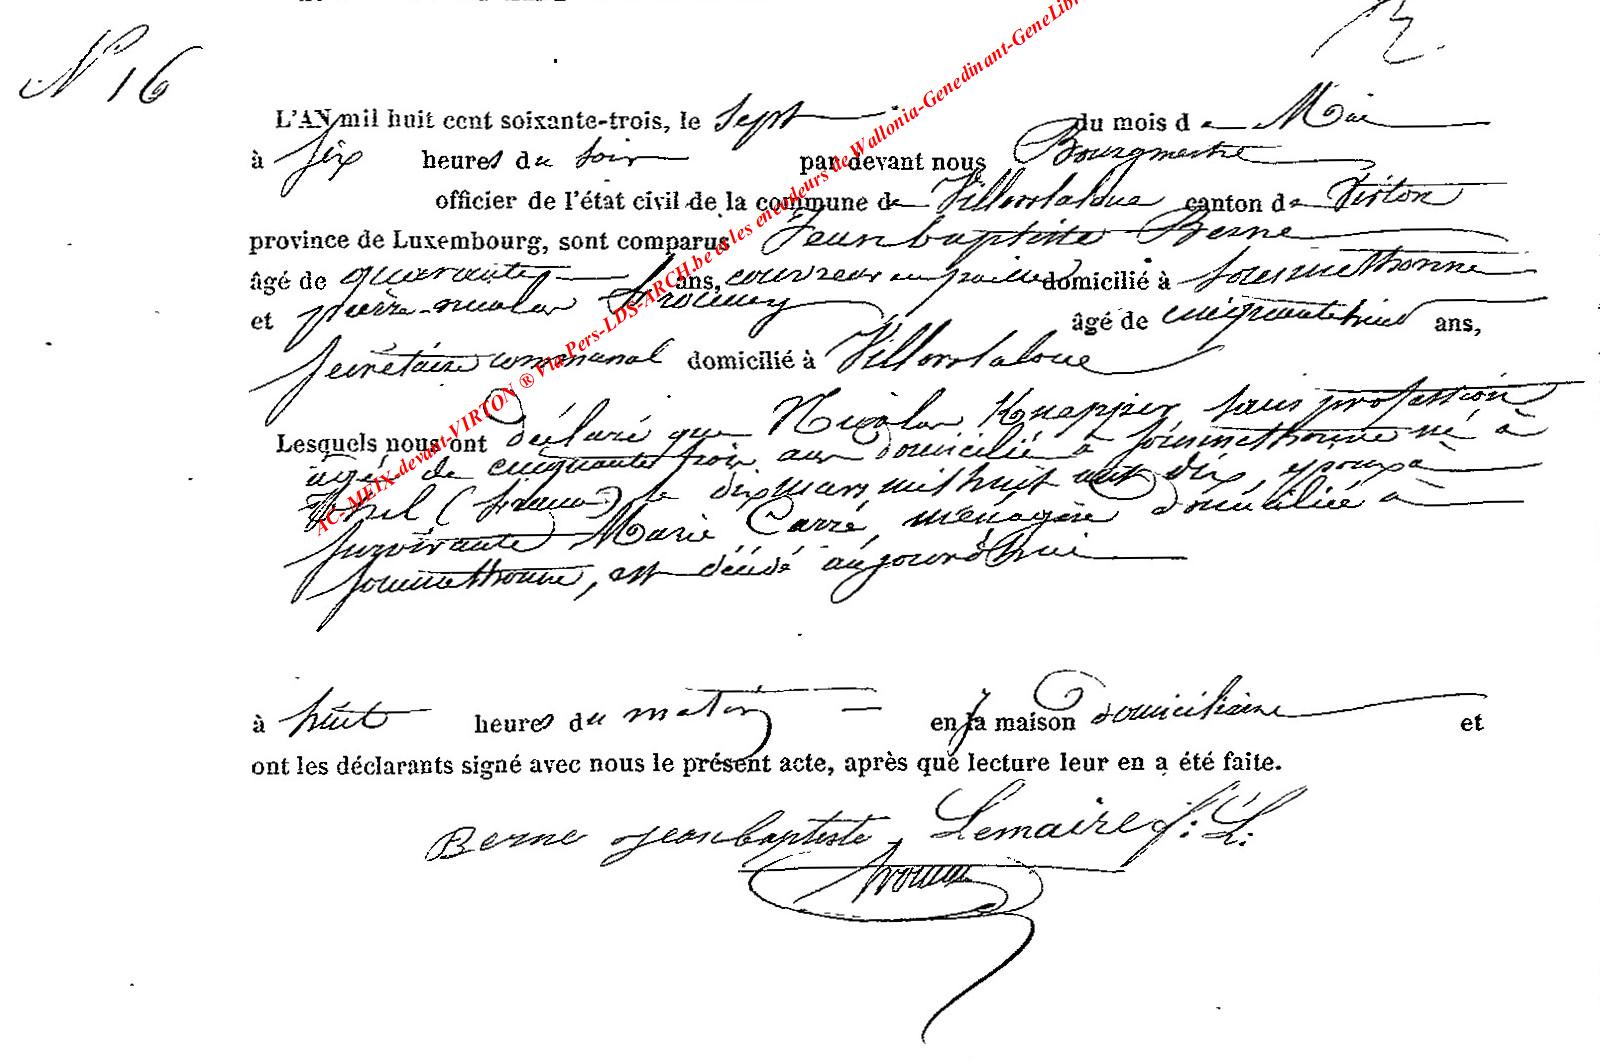 N° 16
L'AN mil huit cent soixante-trois, le Sept du mois de Mai
à six heures du soir par devant nous Bourgmestre
officier de l'état civil de la commune de Villersla­loue canton de Virton
province de Luxembourg, sont comparus Jean baptiste Berne
âgé de quarante ans, couvreur en paille domicilié à Sommethonne
et pierre-nicolas âgé de cinquante huit ans,
Secrétaire communal domicilié à Villerslaloue
Lesquels nous ont déclaré que Nicolas Knepper sans profession
agé de cinquante trois ans domicilié à Sommethonne né à
(france) le dix mars mil huit cent dix, epoux à
survivante Marie Carré, ménagère domiciliée à
Sommethonne, est décédé aujourd'hui
à huit heures du matin en sa maison domiciliaire et
ont les déclarants signé avec nous le présent acte, après que lecture leur en a été faite.
Berne jean baptiste Lemaire f: L:
AC- MEIX-devant-VIRTON ® Via Pers-LDS-ARCH.be et les encodeurs de Wallonia-Genedinant-GeneLib